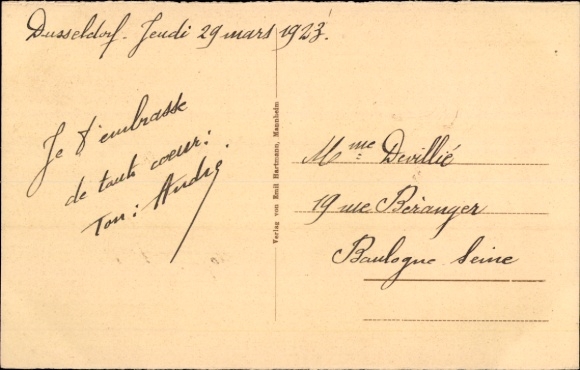 Dusseldorf. Jeudi 29 mars 1923.
Je t'embrasse
de tout cœur.
Ton: André.
Verlag von Emil Hartmann, Mannheim
Mme Devillié
19 rue Béranger
Boulogne Seine